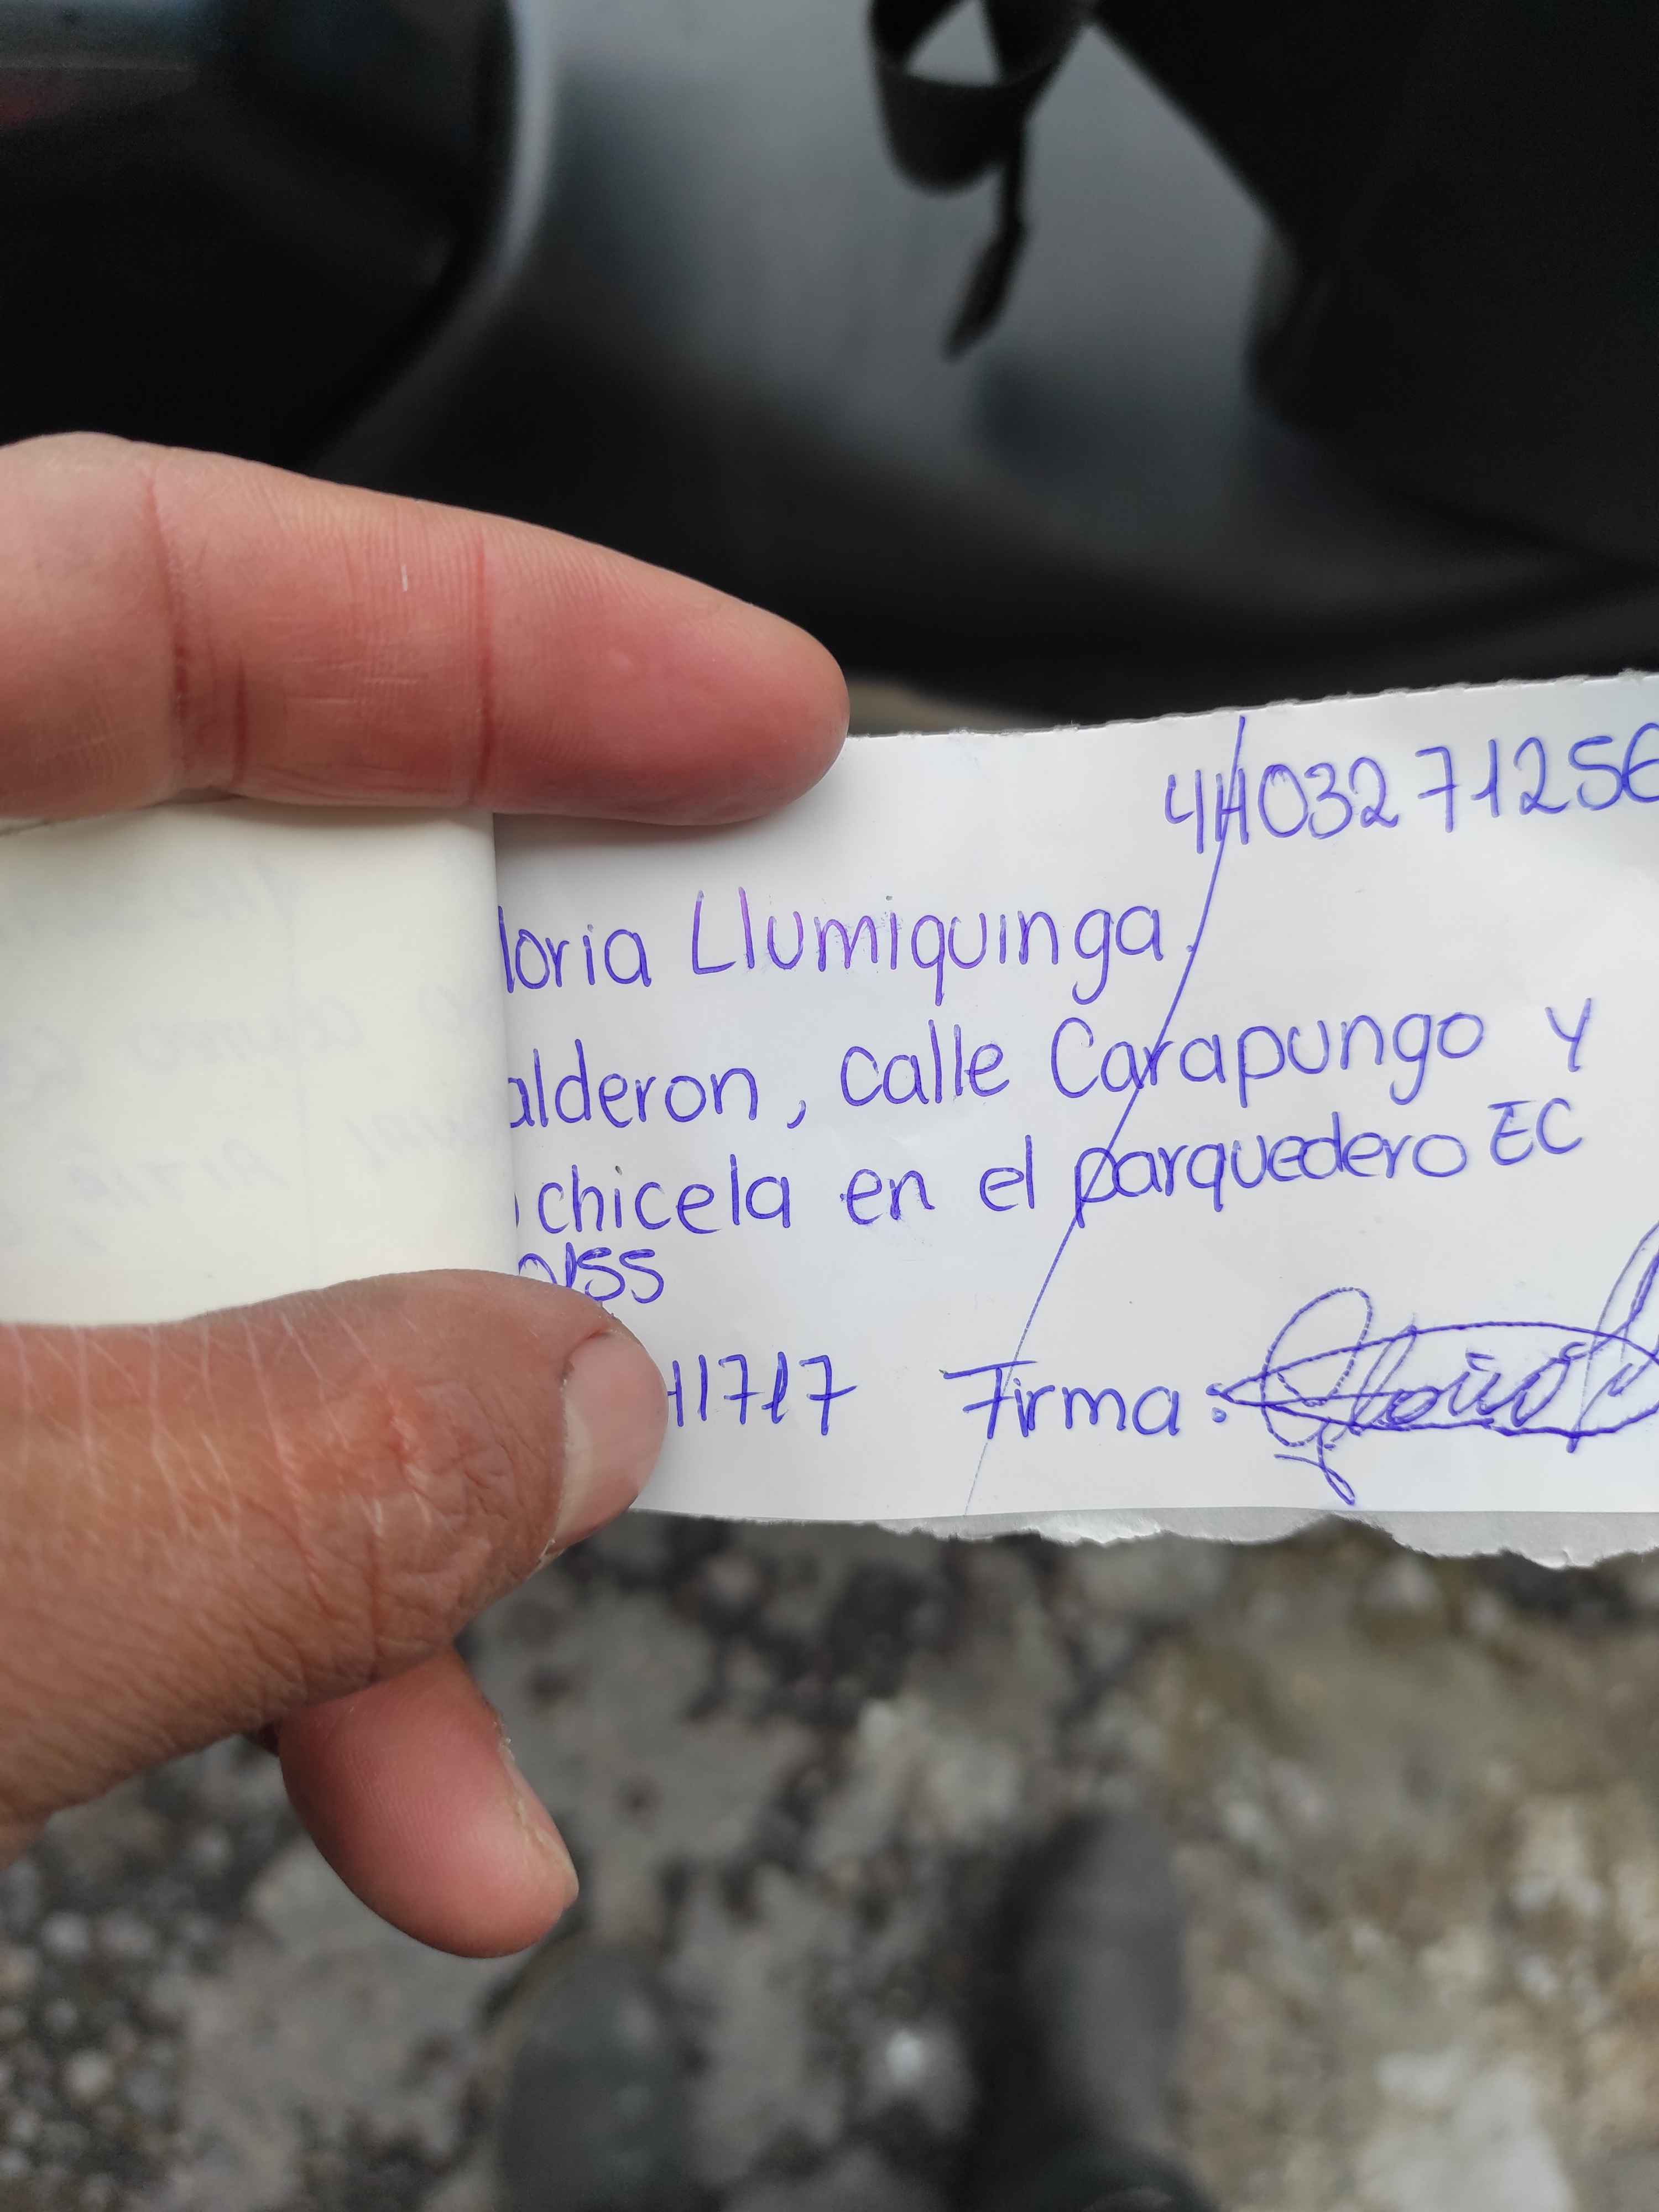 4H03271256
loria Llumiquinga.
alderon, calle Carapungo y
chicela en el parquedero EC
0155
11717 Firma: